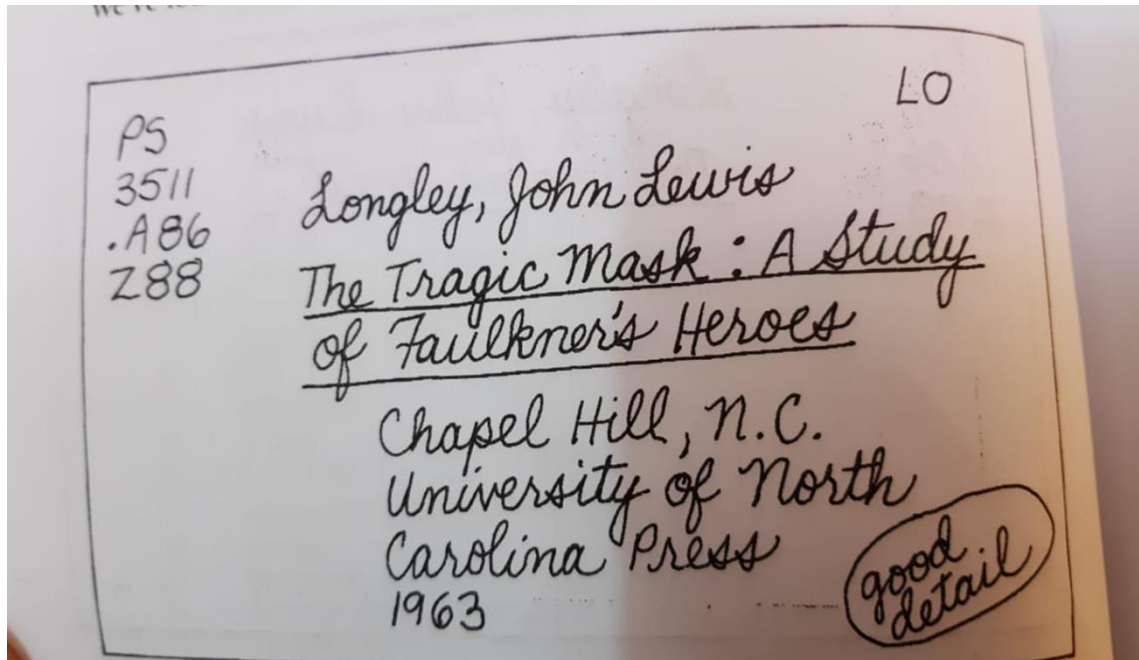 LO
PS
3511
.A86
Z88
Longley, John Lewis
The Tragic Mask : A Study
of Faulkner's Heroes
Chapel Hill, N.C.
University of North
Carolina Press
1963
good
detail